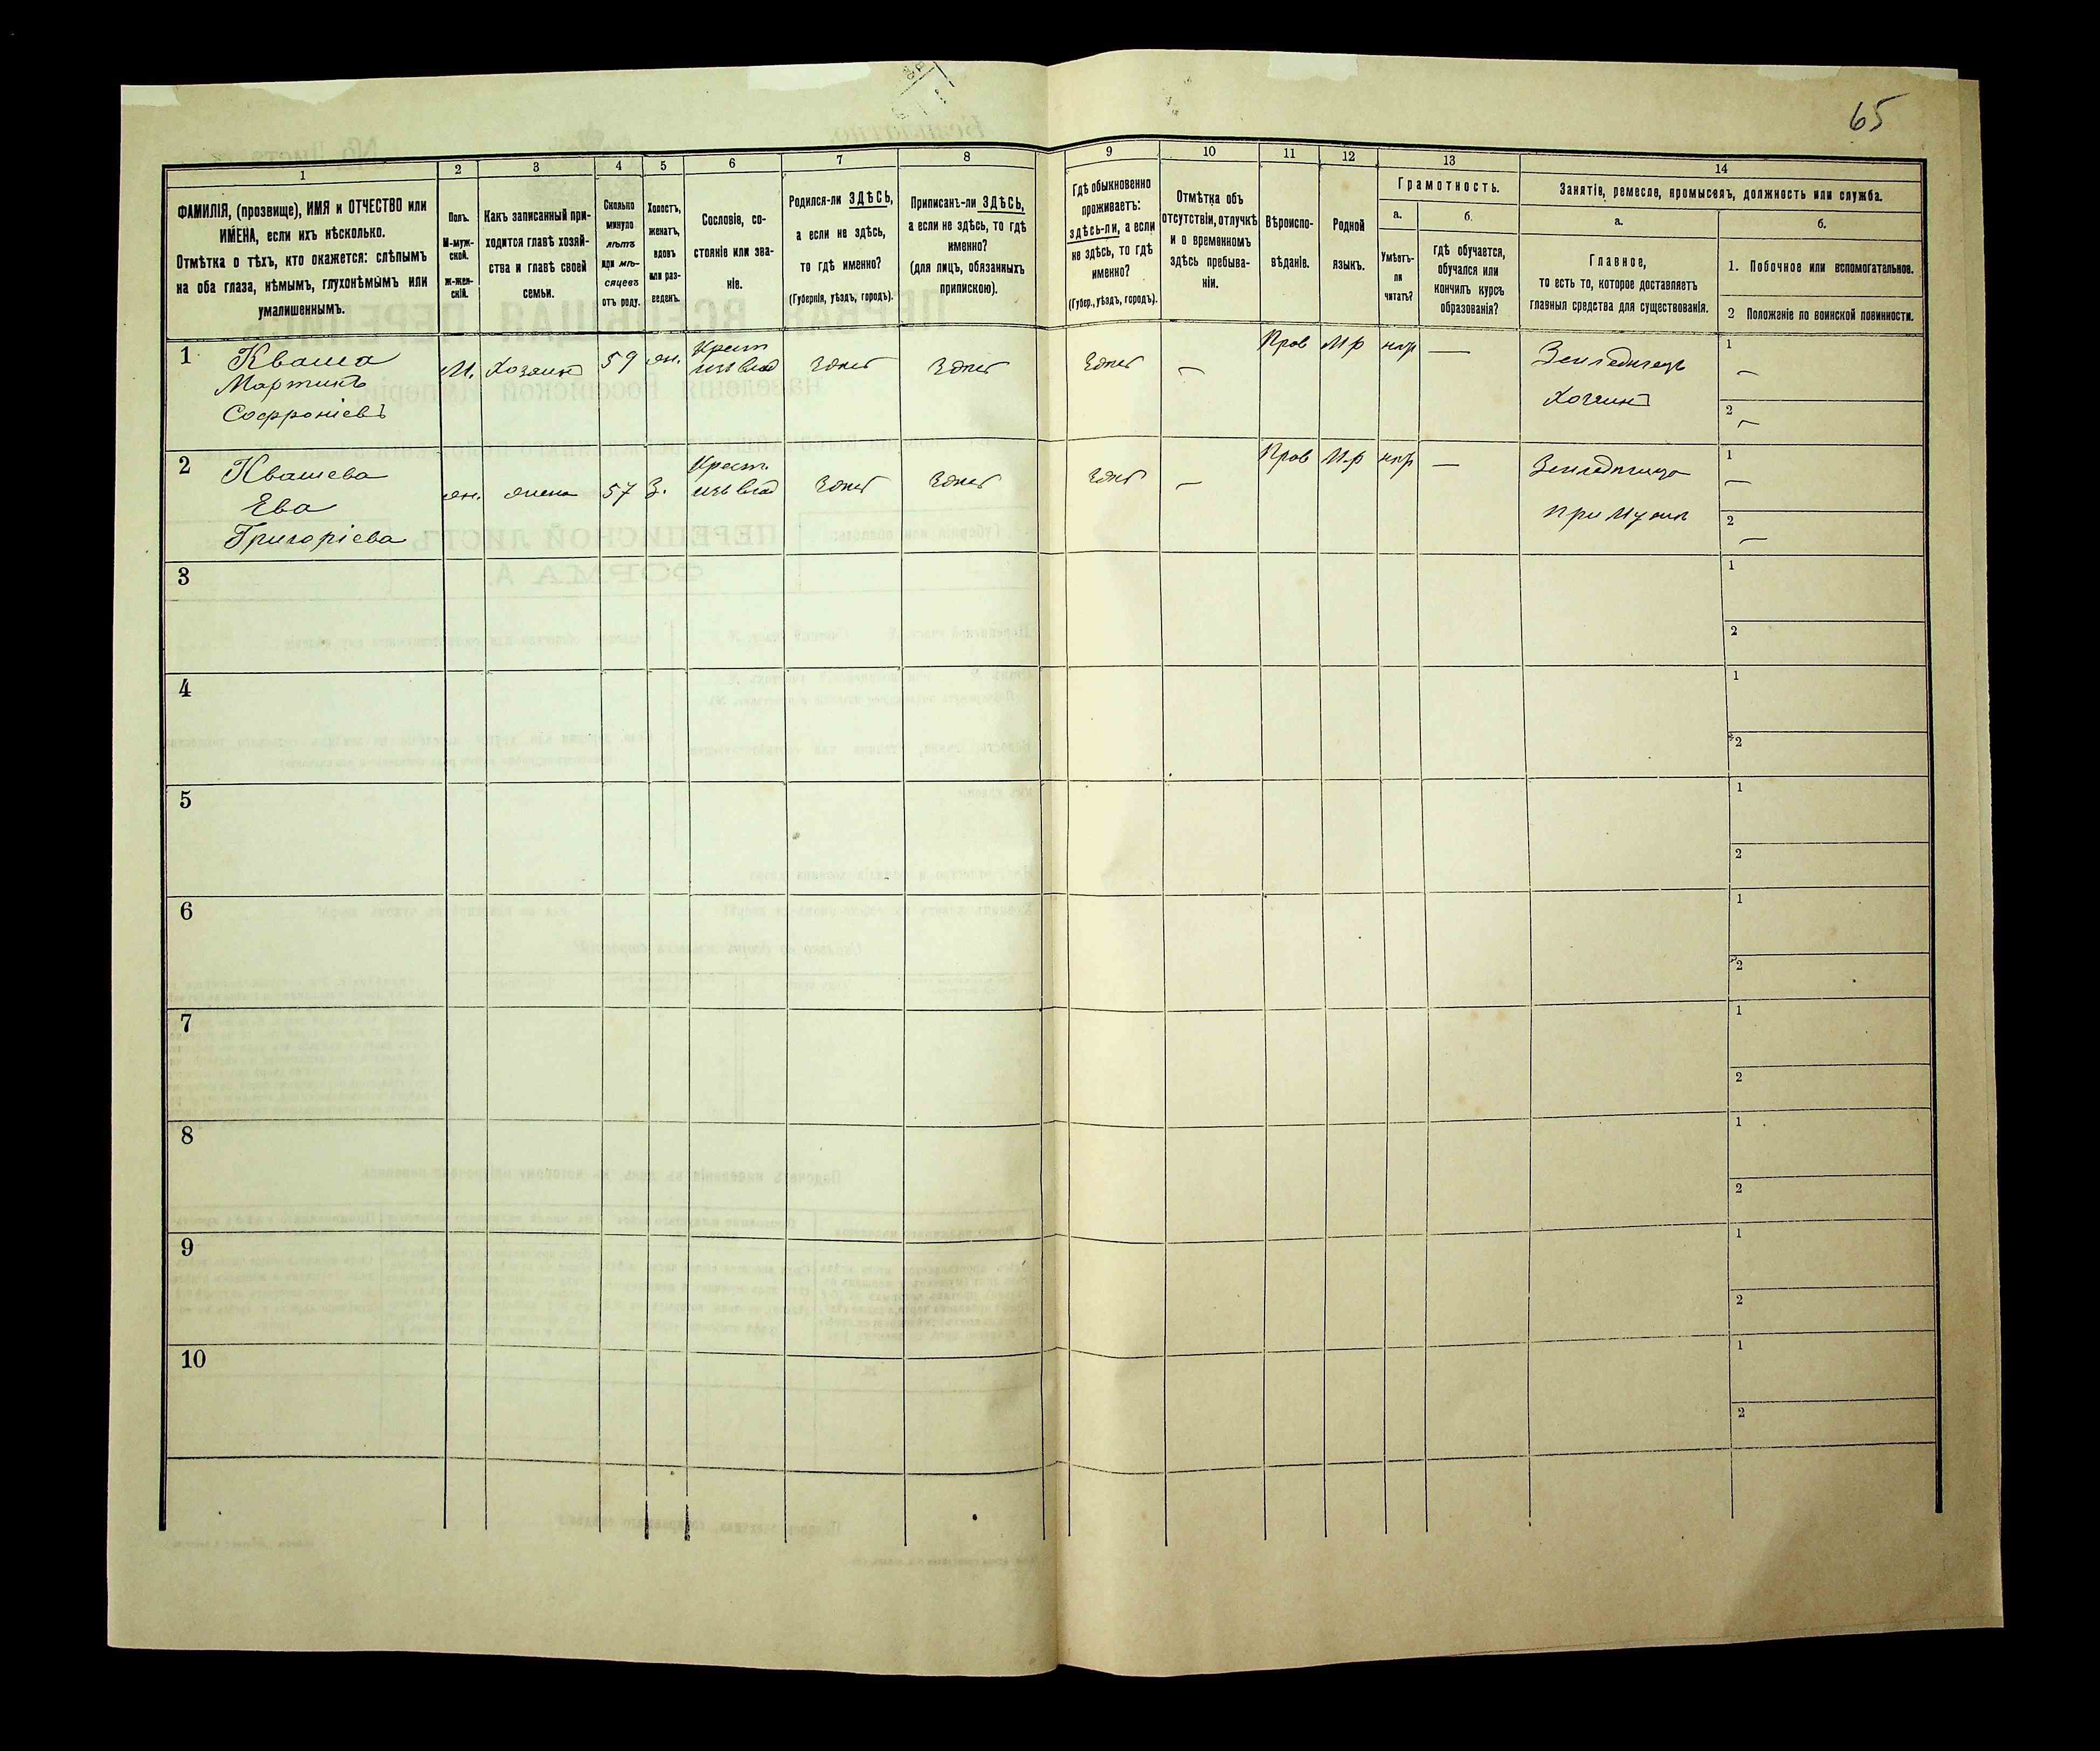 65
1
2
3
4
5
6
7
8
9
10
11
12
13
14
ФАМИЛІЯ, (прозвище), ИМЯ и ОТЧЕСТВО или
ИМЕНА, если ихъ нѣсколько.
Отмѣтка о тѣхъ, кто окажется: слѣпымъ
на оба глаза, нѣмымъ, глухонѣмымъ или
умалишеннымъ.
Полъ.
М-муж-
ской.
Ж-жен-
скій.
Какъ записанный при-
ходится главѣ хозяй-
ства и главѣ своей
семьи.
Сколько
минуло
лѣтъ
или мѣ-
сяцевъ
отъ роду.
Холостъ,
женатъ,
вдовъ
или раз-
веденъ.
Сословіе, со-
стояніе или зва-
ніе.
Родился-ли ЗДѢСЬ,
а если не здѣсь,
то гдѣ именно?
(Губернія, уѣздъ, городъ).
Приписанъ-ли ЗДѢСЬ,
а если не здѣсь, то гдѣ
именно?
(для лицъ, обязанныхъ
припискою).
Гдѣ обыкновенно
проживаетъ:
здѣсь-ли, а если
не здѣсь, то гдѣ
именно?
(Губер., уѣздъ, городъ).
Отмѣтка объ
отсутствіи, отлучкѣ
и о временномъ
здѣсь пребыва-
ніи.
Вѣроиспо-
вѣданіе.
Родной
языкъ.
Грамотность.
а.
Умѣетъ-
ли
читать?
б.
гдѣ обучается,
обучался или
кончилъ курсъ
образованія?
Занятіе, ремесло, промыселъ, должность или служба.
а.
Главное,
то есть то, которое доставляетъ
главныя средства для существованія.
б.
1. Побочное или вспомогательное.
2 Положеніе по воинской повинности.
1
Кваша
Мартинъ
Софроніевъ
М.
Хозяинъ
59
жн.
Крест
изъ влад
Здѣсь
Здѣсь
Здѣсь
—
Прав
М р
нѣтъ
—
Земледѣлецъ
Хозяинъ
1
—
2
—
2
Квашева
Ева
Григоріева
жн.
жена
57
З.
Крест.
изъ влад
Здѣсь
Здѣсь
Здѣсь
—
Прав
М.р
нѣтъ
—
при мужѣ
1
—
2
—
3
1
2
4
1
2
5
1
2
6
1
2
7
1
2
8
1
2
9
1
2
10
1
2